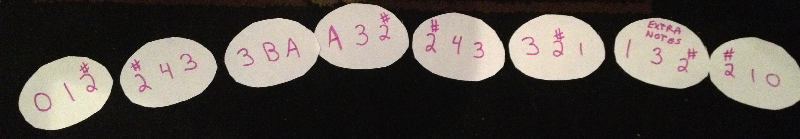 0 1 #2
#2 4 3
3 B A
A 3 #2
#2 4 3
3 #2 1
EXTRA
NOTES
1 3 2#
#2 1 0